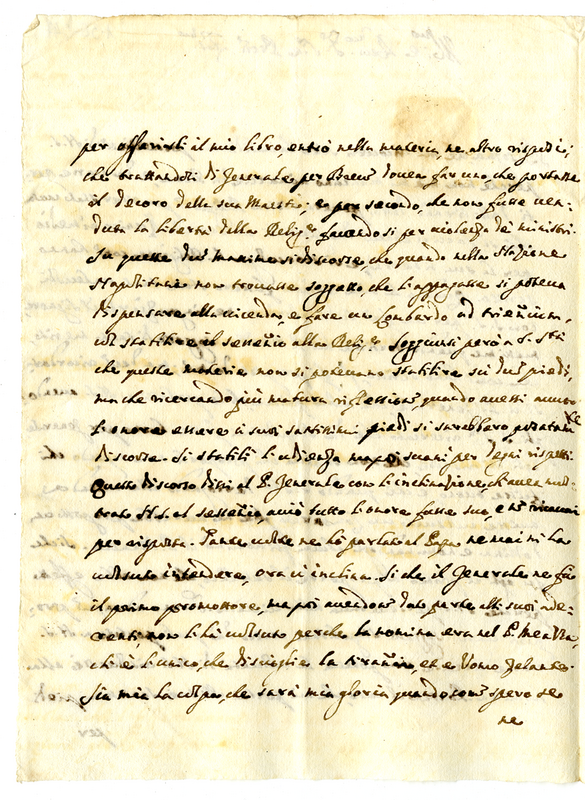 per offerirli il mio libro, entrò nella materia, ne altro rispose;
che trattandosi di Generale per Breve dovea far uno, che portasse
il decoro della sua Maestà; e per secondo, che non fusse ven-
duta la libertà della Relig.e facendosi per violenza de ministri.
Su queste due massime si discorse, che quando nella Nazione
Napolitana non trovasse soggetto, che l'appagasse si poteva
dispensare alla vicenda, e fare un Lombardo ad triennium,
col statilire il sessennio alla Relig.e Soggiunsi però a S. Stà
che queste materie non si potevano statilire sù due piedi,
ma che ricercando più matura riflessione, quando avessi avuto
l'onore essere a suoi santissimi piedi si sarebbero
discorse. Si statilì l'udienza per degni rispetti
Questo discorso dissi al P. Generale con l'inclinazione, che avea mos-
trato N. S. al sessennio, acciò tutto l'onore fusse suo, e
per risposta. Tante volte ne hò parlato al Papa ne mai mi ha
volsuto intendere, ora ci inclina. Si che il Generale ne fu
il primo promottore, ma poi avendone dato parte alli suoi ade-
renti, non li hà volsuto perche la nomina era nel P.
ch'è l'unico, che discioglie la tirannia, et è Uomo zelante.
Sia mia la colpa, che sarà mia gloria quando come spero se
ne